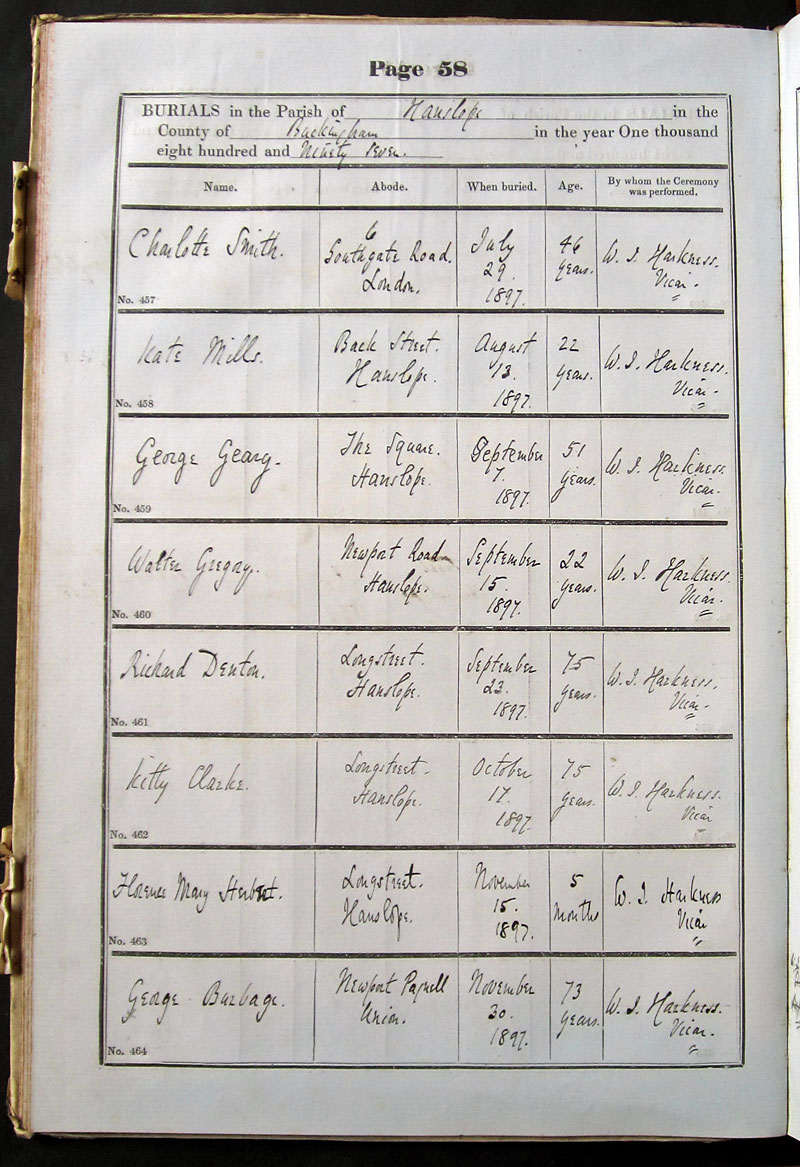 Page 58
BURIALS in the Parish of Hanslope in the
County of Buckingham in the year One thousand
eight hundred and Ninety Seven.
Name. Abode. When buried. Age. By whom the Ceremony was performed.
Charlotte Smith.
No. 457
6
Southgate Road.
London.
July
29.
1897.
46
years.
W. J. Harkness.
Vicar.
Kate Mills.
No. 458
Back Street.
Hanslope.
August
13.
1897.
22
years.
W. J. Harkness.
Vicar.
George Geary.
No. 459
The Square.
Hanslope.
September
7.
1897.
51
years.
W. J. Harkness.
Vicar.
Walter Gregory.
No. 460
Newport Road
Hanslope.
September
15.
1897.
22
years.
W. J. Harkness.
Vicar.
Richard Denton.
No. 461
Longstreet.
Hanslope.
September
23.
1897.
75
years.
W. J. Harkness.
Vicar.
Kitty Clarke.
No. 462
Longstreet.
Hanslope.
October
17.
1897.
75
years.
W. J. Harkness.
Vicar
Florence Mary Herbert.
No. 463
Longstreet.
Hanslope.
November
15.
1897.
5
months
W. J. Harkness
Vicar
George Burbage.
No. 464
Newport Pagnell
Union.
November
30.
1897.
73
years.
W. J. Harkness.
Vicar.